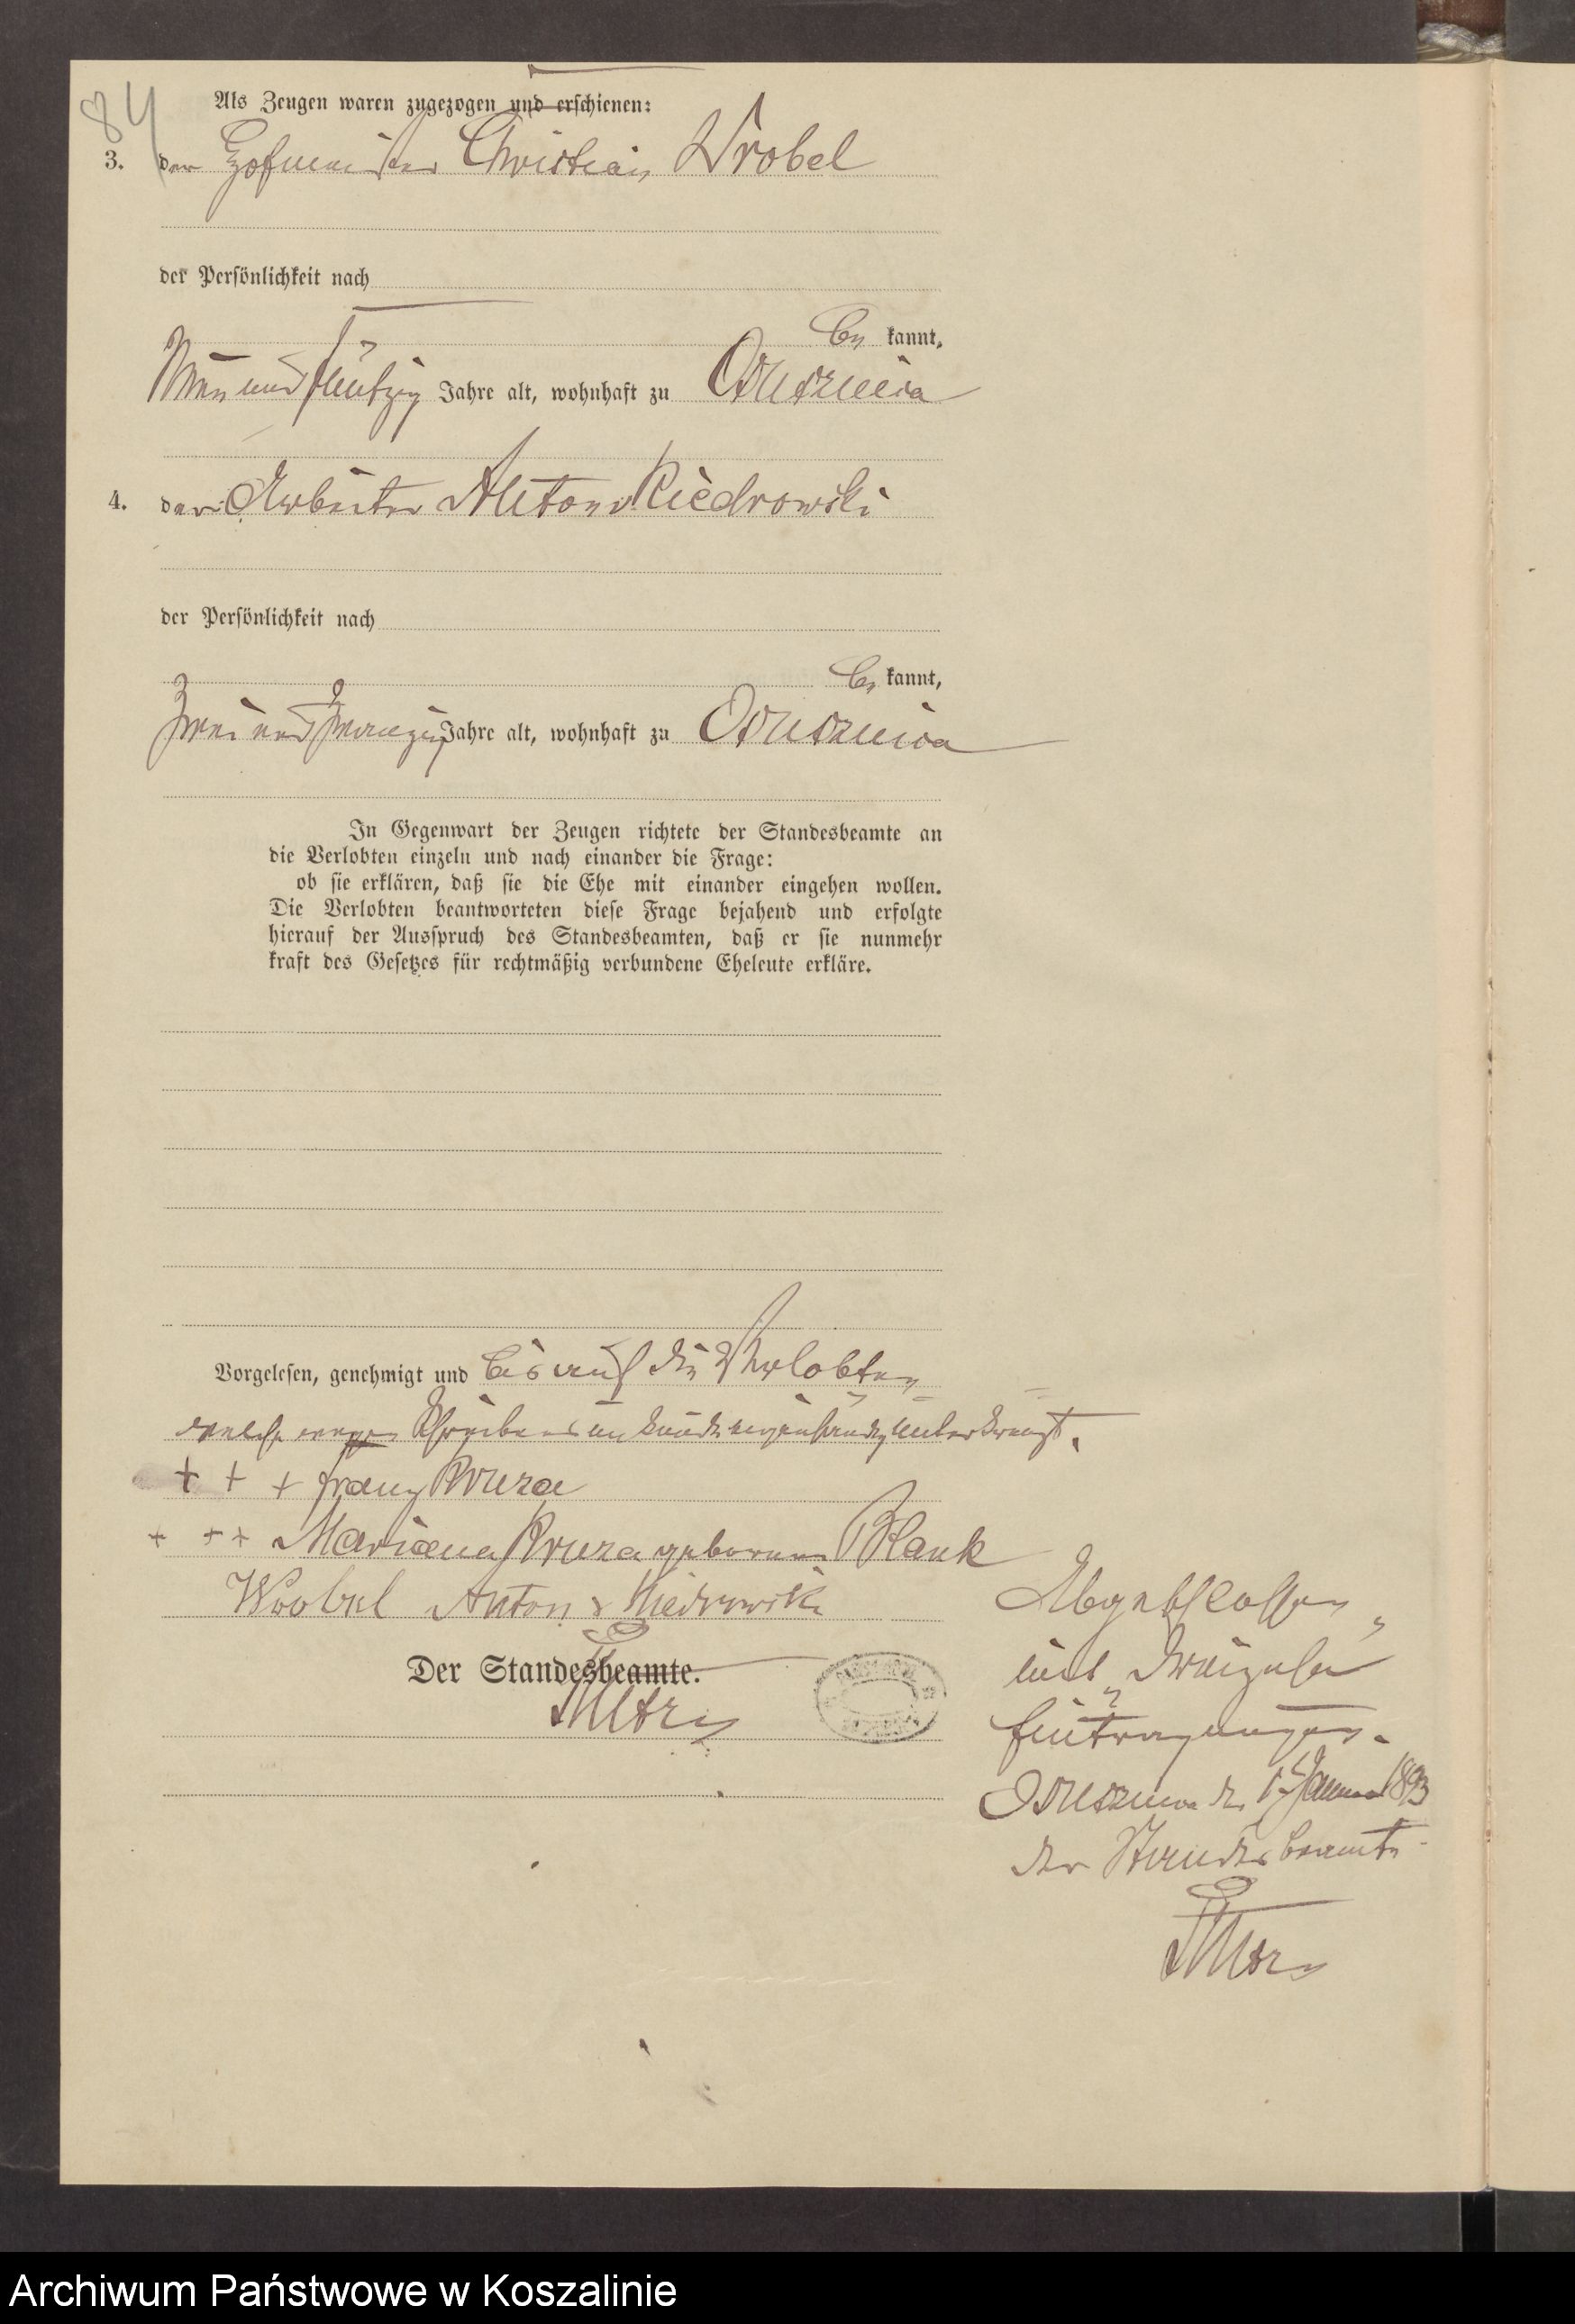 84
Als Zeugen waren zugezogen und erschienen:
3. der Hofmeister Christian Wrobel
der Persönlichkeit nach
be kannt,
Neun und fünfzig Jahre alt, wohnhaft zu Ossusznica
4. der Arbeiter Anton Kiedrowski
der Persönlichkeit nach
be kannt,
Zwei und zwanzig Jahre alt, wohnhaft zu Ossusznica
In Gegenwart der Zeugen richtete der Standesbeamte an
die Verlobten einzeln und nach einander die Frage:
ob sie erklären, daß sie die Ehe mit einander eingehen wollen.
Die Verlobten beantworteten diese Frage bejahend und erfolgte
hierauf der Ausspruch des Standesbeamten, daß er sie nunmehr
kraft des Gesetzes für rechtmäßig verbundene Eheleute erkläre.
Vorgelesen, genehmigt und bis auf die Verlobten
welche wegen Schreibens unkunde eigenhändig unterkreuzt.
+ + + Franz
+ + + Mariana geborene Blank
Wrobel Anton v Kiedrowski
Der Standesbeamte.
Abgeschlossen
mit "dreizehn"
Eintragungen.
Ossusznica den 1ten Januar 1893
der Standesbeamte
Archiwum Państwowe w Koszalinie